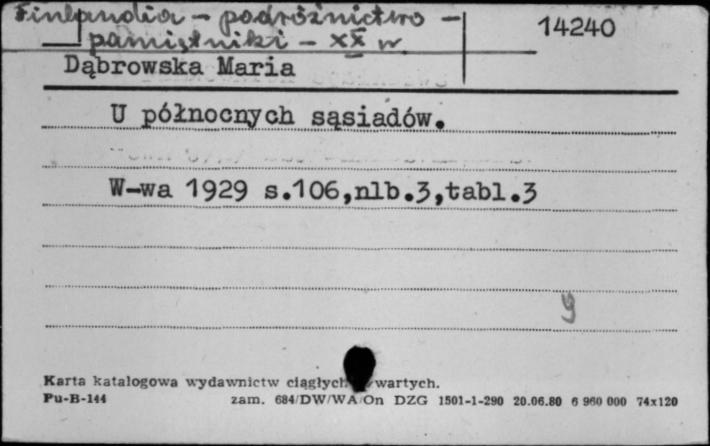 Finlandia - podróżnictwo -
pamiętniki - XX w
14240
Dąbrowska Maria
U północnych sąsiadów.
W-wa 1929 s.106,nlb.3,tabl.3
g
Karta katalogowa wydawnictw ciągłych wartych.
Pu-B-144 zam. 684/DW/WA/On DZG 1501-1-290 20.06.80 6 960 000 74x120